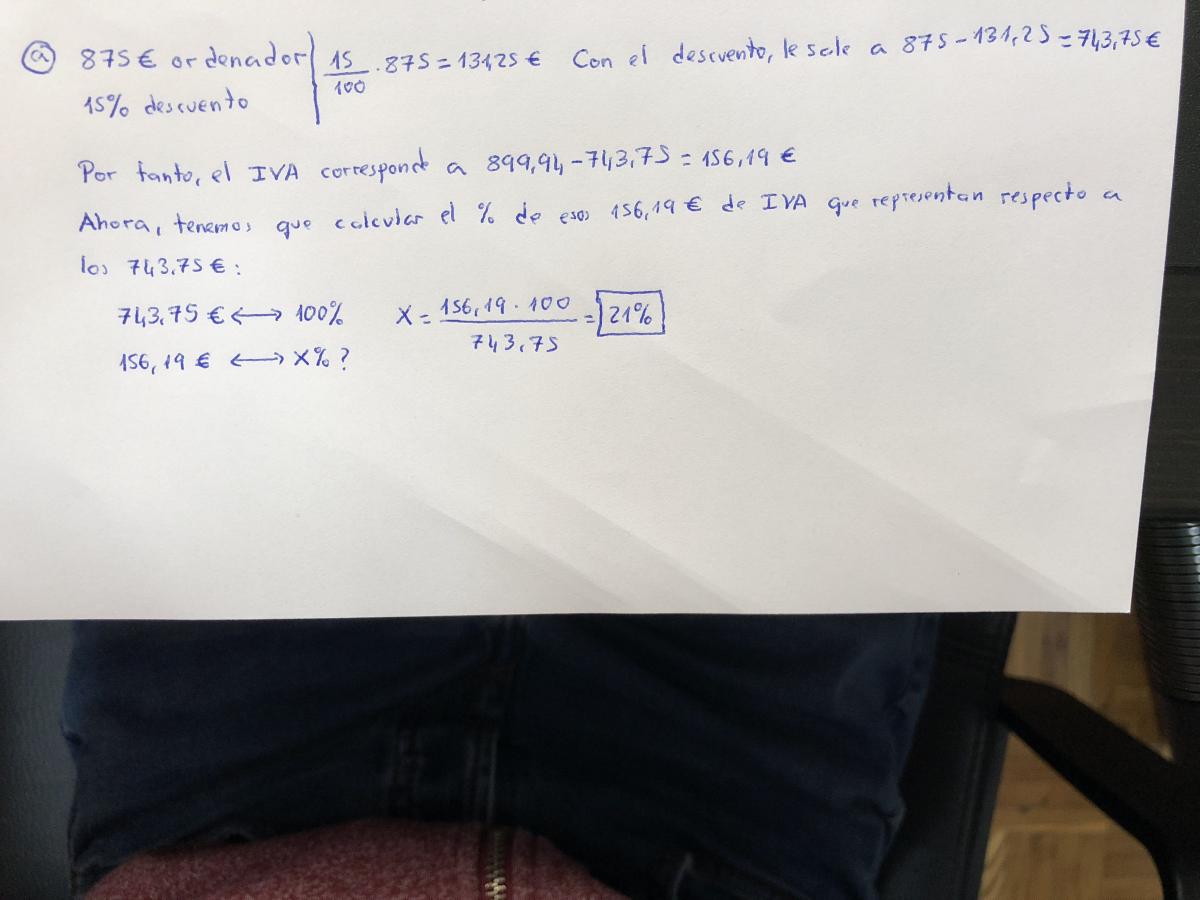 a) 875 € ordenador | 15/100 · 875 = 131,25 € Con el descuento, le sale a 875 - 131,25 = 743,75 €
15% descuento
Por tanto, el IVA corresponde a 899,94 - 743,75 = 156,19 €
Ahora, tenemos que calcular el % de esos 156,19 € de IVA que representan respecto a
los 743.75 € :
743.75 € ⟷ 100% X = 156,19 · 100 / 743,75 = 21%
156,19 € ⟷ X% ?